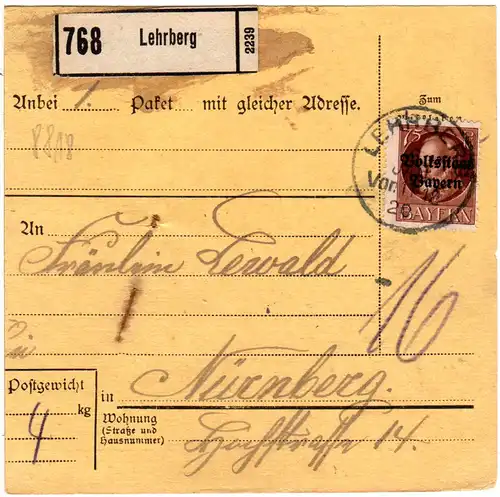 768 Lehrberg 2239
Anbei 1. Paket mit gleicher Adresse.
Zum
LEHRBERG
75
Volksstaat
Bayern
Vor.
20
BAYERN
An
Fräulein Lewald
16
Postgewicht
4 kg
in Nürnberg.
Wohnung
(Straße und
Hausnummer)
Hochstraße 14.